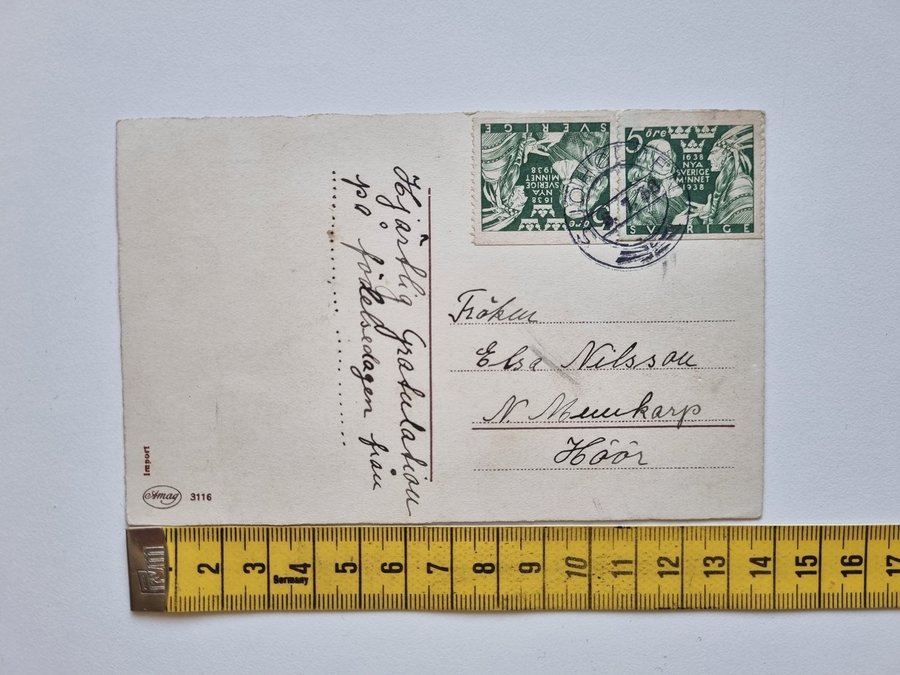 SVERIGE
1638
NYA
SVERIGE
MINNET
1938
5 öre
5 öre
1638
NYA
SVERIGE
MINNET
1938
SVERIGE
Hjärtlig Gratulation
på födelsedagen från
Fröken
Elsa Nilsson
N. Munkarp
Höör
Import
Amag 3116
2 3 4 5 6 7 8 9 10 11 12 13 14 15 16 17
Germany